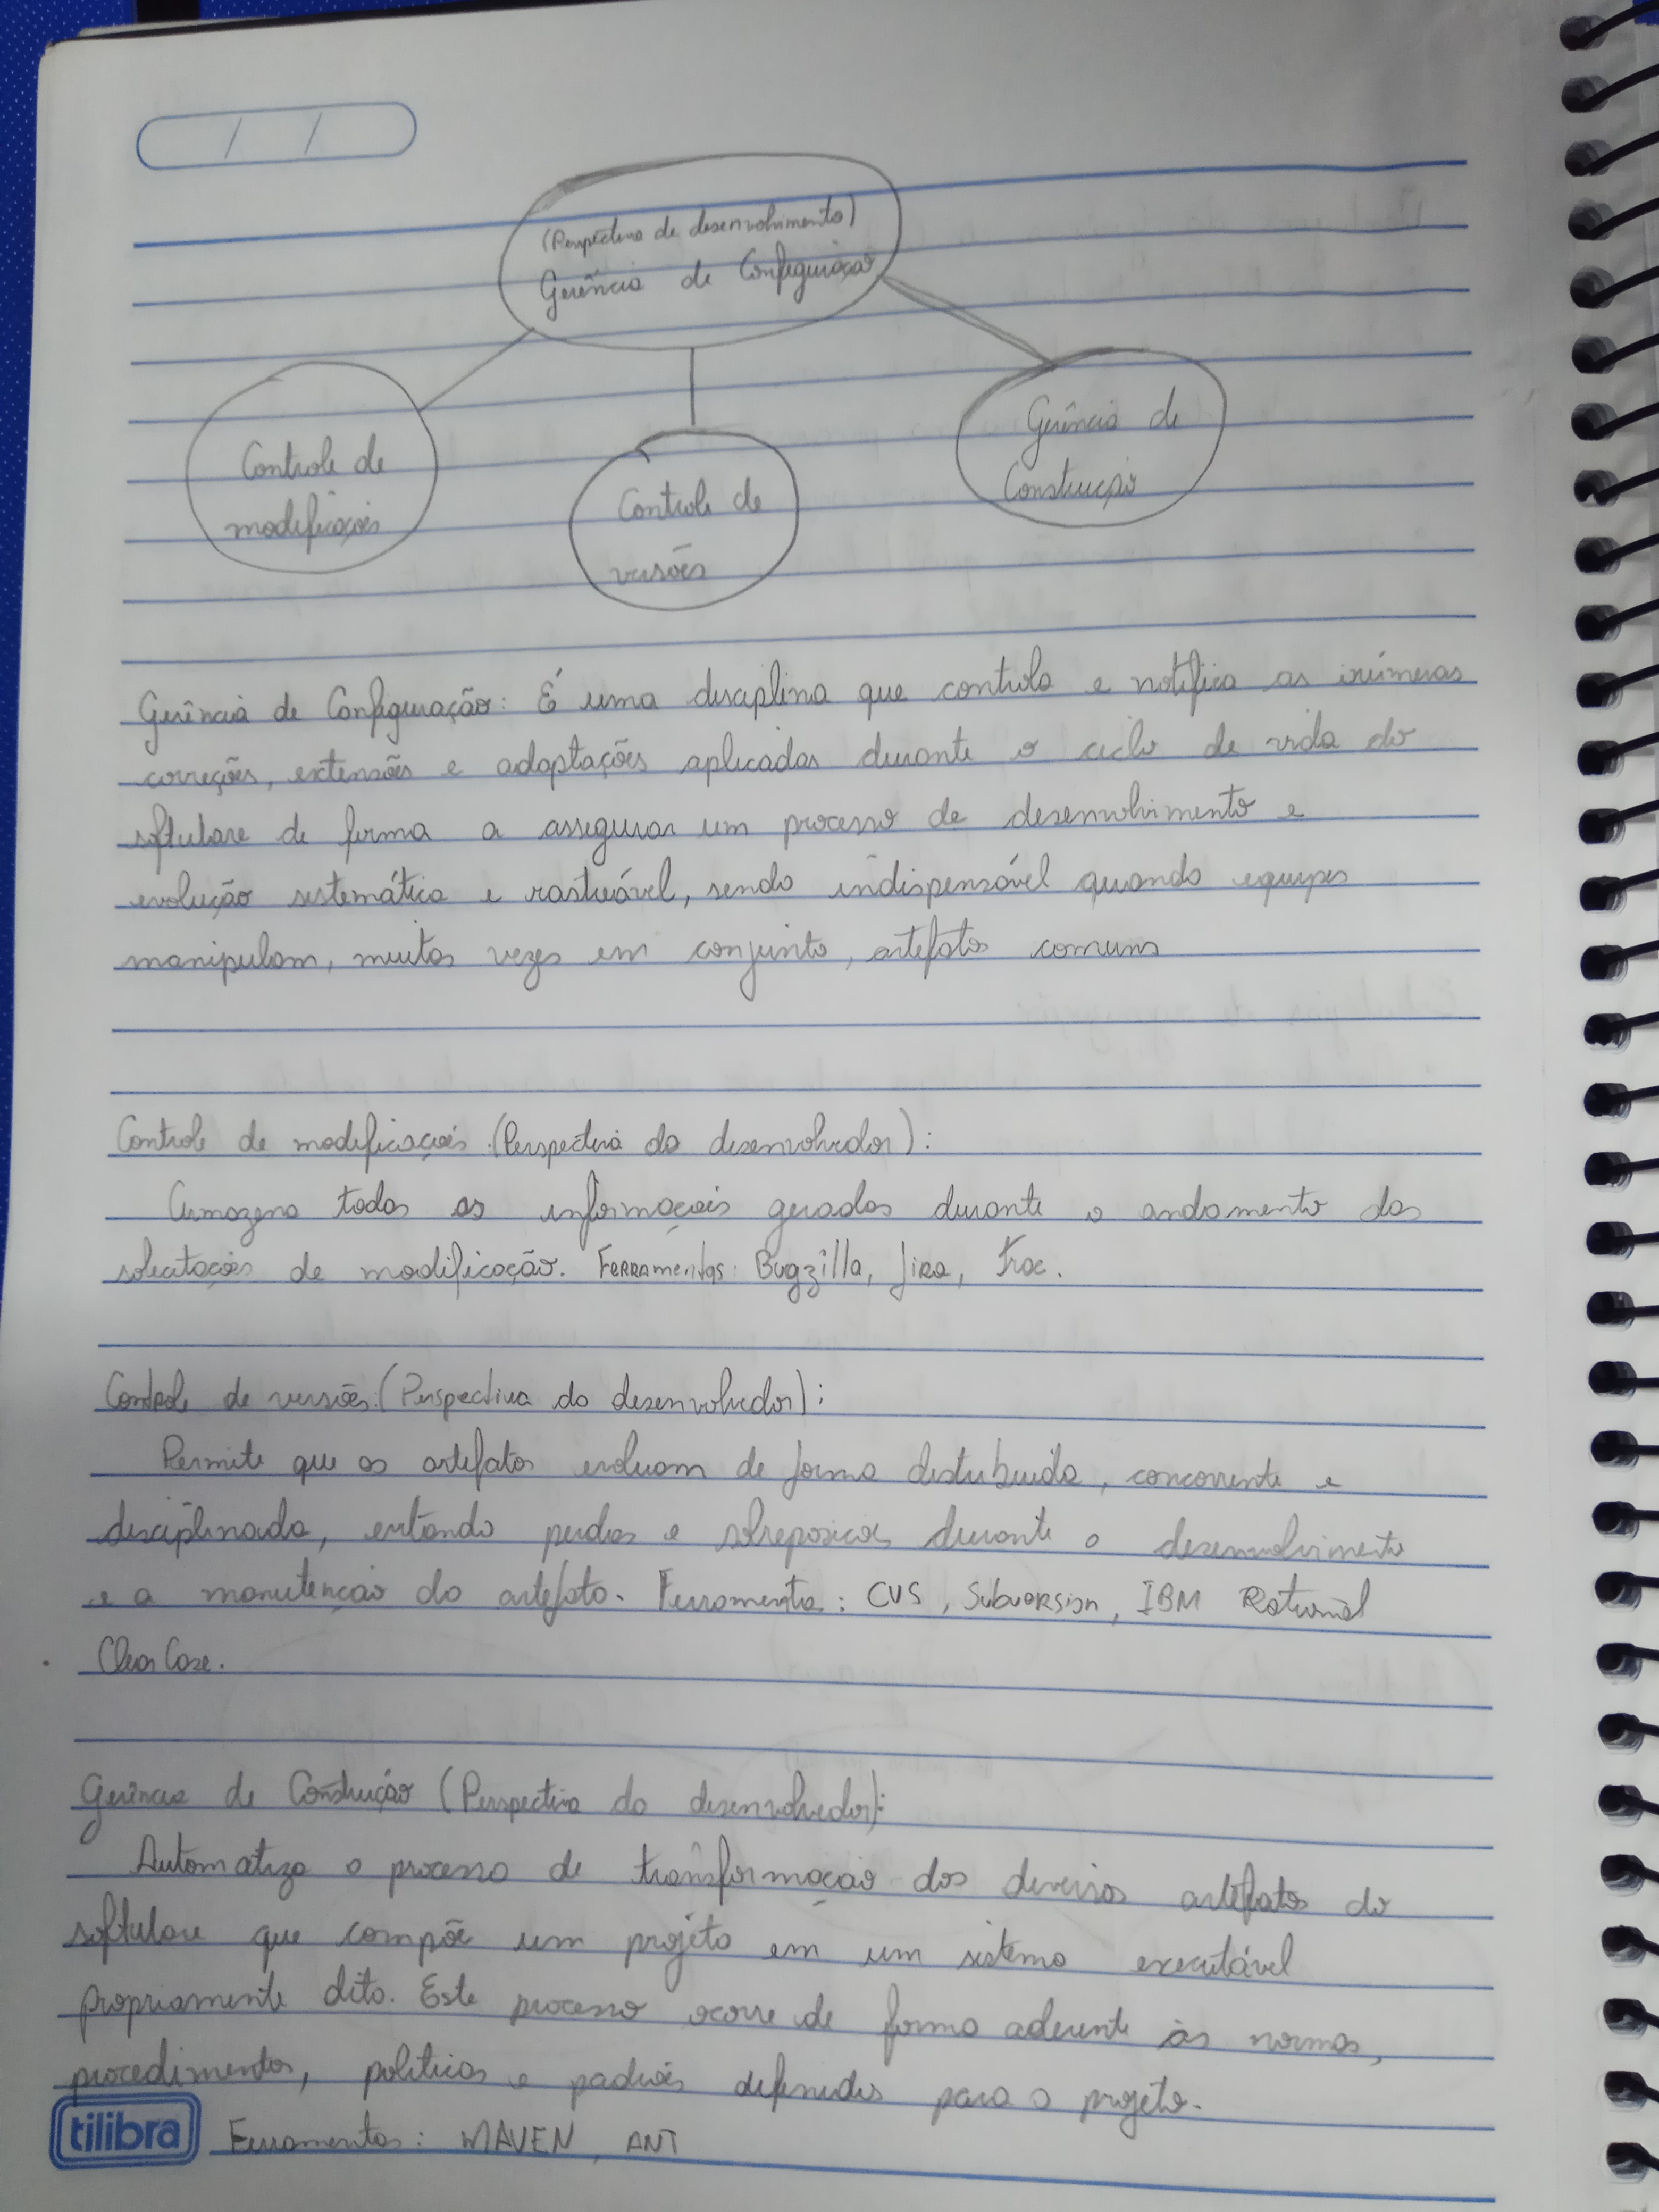 / /
(Perspectiva de desenvolvimento)
Gerência de Configuração
Controle de
modificações
Controle de
versões
Gerência de
Construção
Gerência de Configuração: É uma disciplina que controla e notifica as inúmeras
correções, extensões e adaptações aplicadas durante o ciclo de vida do
software de forma a assegurar um processo de desenvolvimento e
evolução sistemática e rastreável, sendo indispensável quando equipes
manipulam, muitas vezes em conjunto, artefatos comuns
Controle de modificações (Perspectiva do desenvolvedor):
Armazena todas as informações geradas durante o andamento das
solicitações de modificação. Ferramentas: Bugzilla, Jira, Trac.
Controle de versões (Perspectiva do desenvolvedor):
Permite que os artefatos evoluam de forma distribuida, concorrente e
disciplinada, evitando perdas e sobreposições durante o desenvolvimento
e a manutenção do artefato. Ferramenta: CVS, Subversion, IBM Rational
Clear Case.
Gerência de Construção (Perspectiva do desenvolvedor):
Automatiza o processo de transformação dos diversos artefatos do
software que compõe um projeto em um sistema executável
propriamente dito. Este processo ocorre de forma aderente às normas,
procedimentos, políticas e padrões definidos para o projeto.
tilibra Ferramentas: MAVEN, ANT